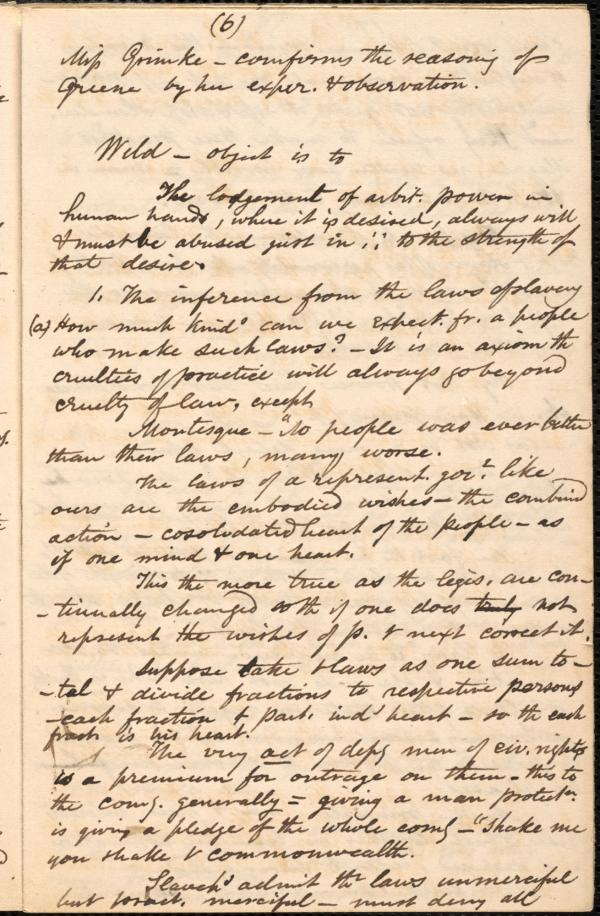 (6)
Miss Grimke - comfirms the reasoning of
Greene by her exper. & observation.
Weld - object is to
The lodgement of arbit. power in
human hands, where it is desired, always will
& must be abused just in :; to the strength of
that desire.
1. The inference from the laws of slavery
(a) How much kinds can we expect. fr. a people
who make such laws? - It is an axiom th
cruelties of practice will always go beyond
cruelty of law, except
Montesque - "No people was ever better
than their laws, many worse.
The laws of a represent. govt. like
ours are the embodied wishes - the combined
action - cosolodated heart of the people - as
if one mind & one heart.
This the more true as the legis. are con-
-tinually changed so th if one does truly not
represent the wishes of p. & next correct it.
Suppose take slaws as one sum to-
-tal & divide fractions to respective persons
- each fraction & part. ind' heart - so th each
fract is his heart.
The very act of depg men of civ. rights
is a premium for outrage on them - this to
the comg. generally = giving a man protectn.
is giving a pledge of the whole comg - "Shake me
you shake & commonwealth.
Slaveh's admit th laws unmerciful
but pract. merciful - must deny all